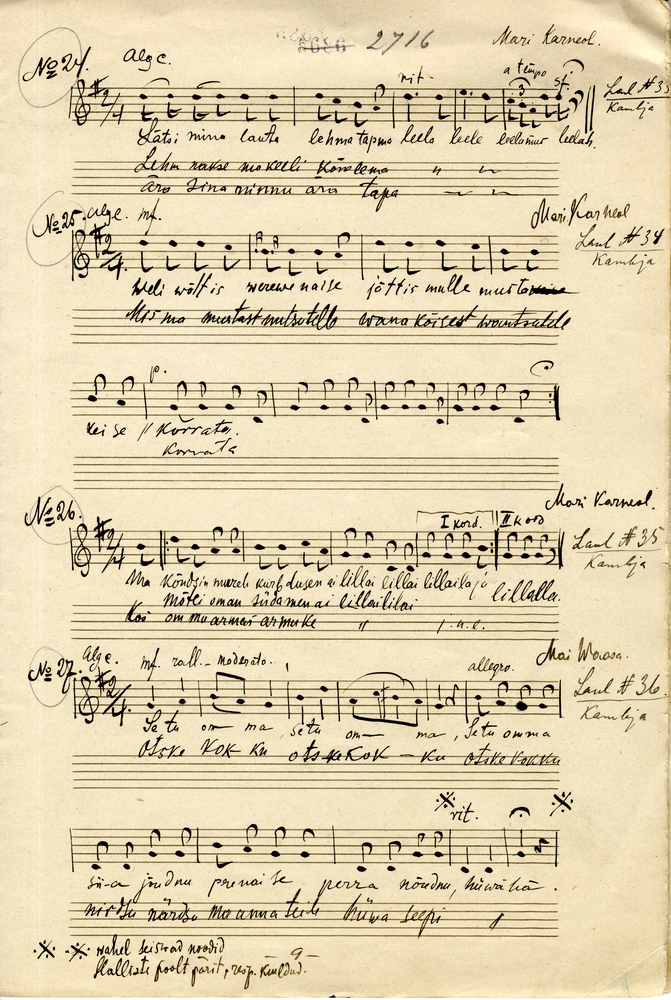 2716 Mari Karneol.
No 24. Algc.
rit. a tempo
Lätsi minna lauta lehma tapma leelo leele leelomur leelah.
Laul # 33
Kambja
Lehm nakse mo keeli kõnelema " "
ära sina minnu ära tapa
No 25. Algc. mf. Mari Karneol
Laul # 34
Kambja
Weli wõttis werewe naise jättis mulle musta
Mis ma mustast mutsutelle wana koisest wantsutelle
p.
keise // Kõrrata.
Korrata
No 26. Mari Karneol.
I kord. II kord
Laul # 35
Kambja
Ma Kõndsin mureh kurbdusen ai lillai lillai lillaila ja lillalla.
Mõtli oman südamen ai lillaililai
Kos om mu armas armuke " j.n.e.
No 27. Algc. mf. rall. - moderato. allegro. Mai Worosa.
Laul # 36
Kambja
Setu om ma, Setu om ma, Setu omma
Otske Kokku otske Kok - ku otske kokku
rit.
sii-a jõudnu perenaise perra nõudnu, hüwä hä.
nirdsu närdsu mo anna teile hüwa seepi "
wahel seiswad noodid
Hallisti poolt pärit, resp. kuuldud.